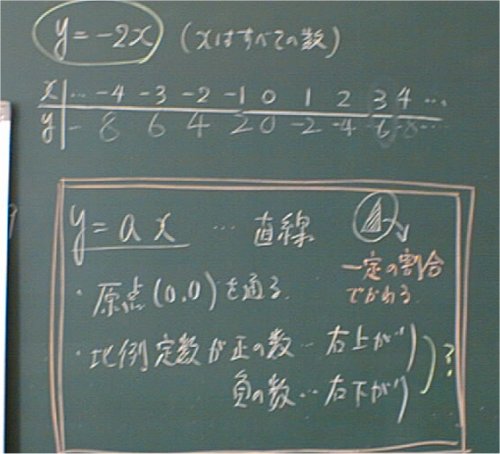 y=-2x (xはすべての数)
x … -4 -3 -2 -1 0 1 2 3 4 …
y … 8 6 4 2 0 -2 -4 -6 -8 …
y=ax … 直線
一定の割合
でかわる
・原点(0.0)を通る
・比例定数が正の数…右上がり
負の数…右下がり ?